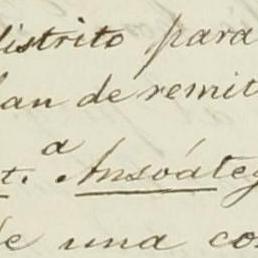 distrito para
lan de remit
a
t. Ansoáteg
de una co